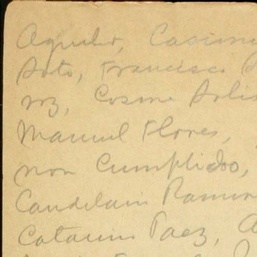 Aguilar, Casimi
Soto, Francisco
rez, Cosme Solis
Manuel Flores,
non Cumplido,
Candelario Ramir
Catarino Paez, A